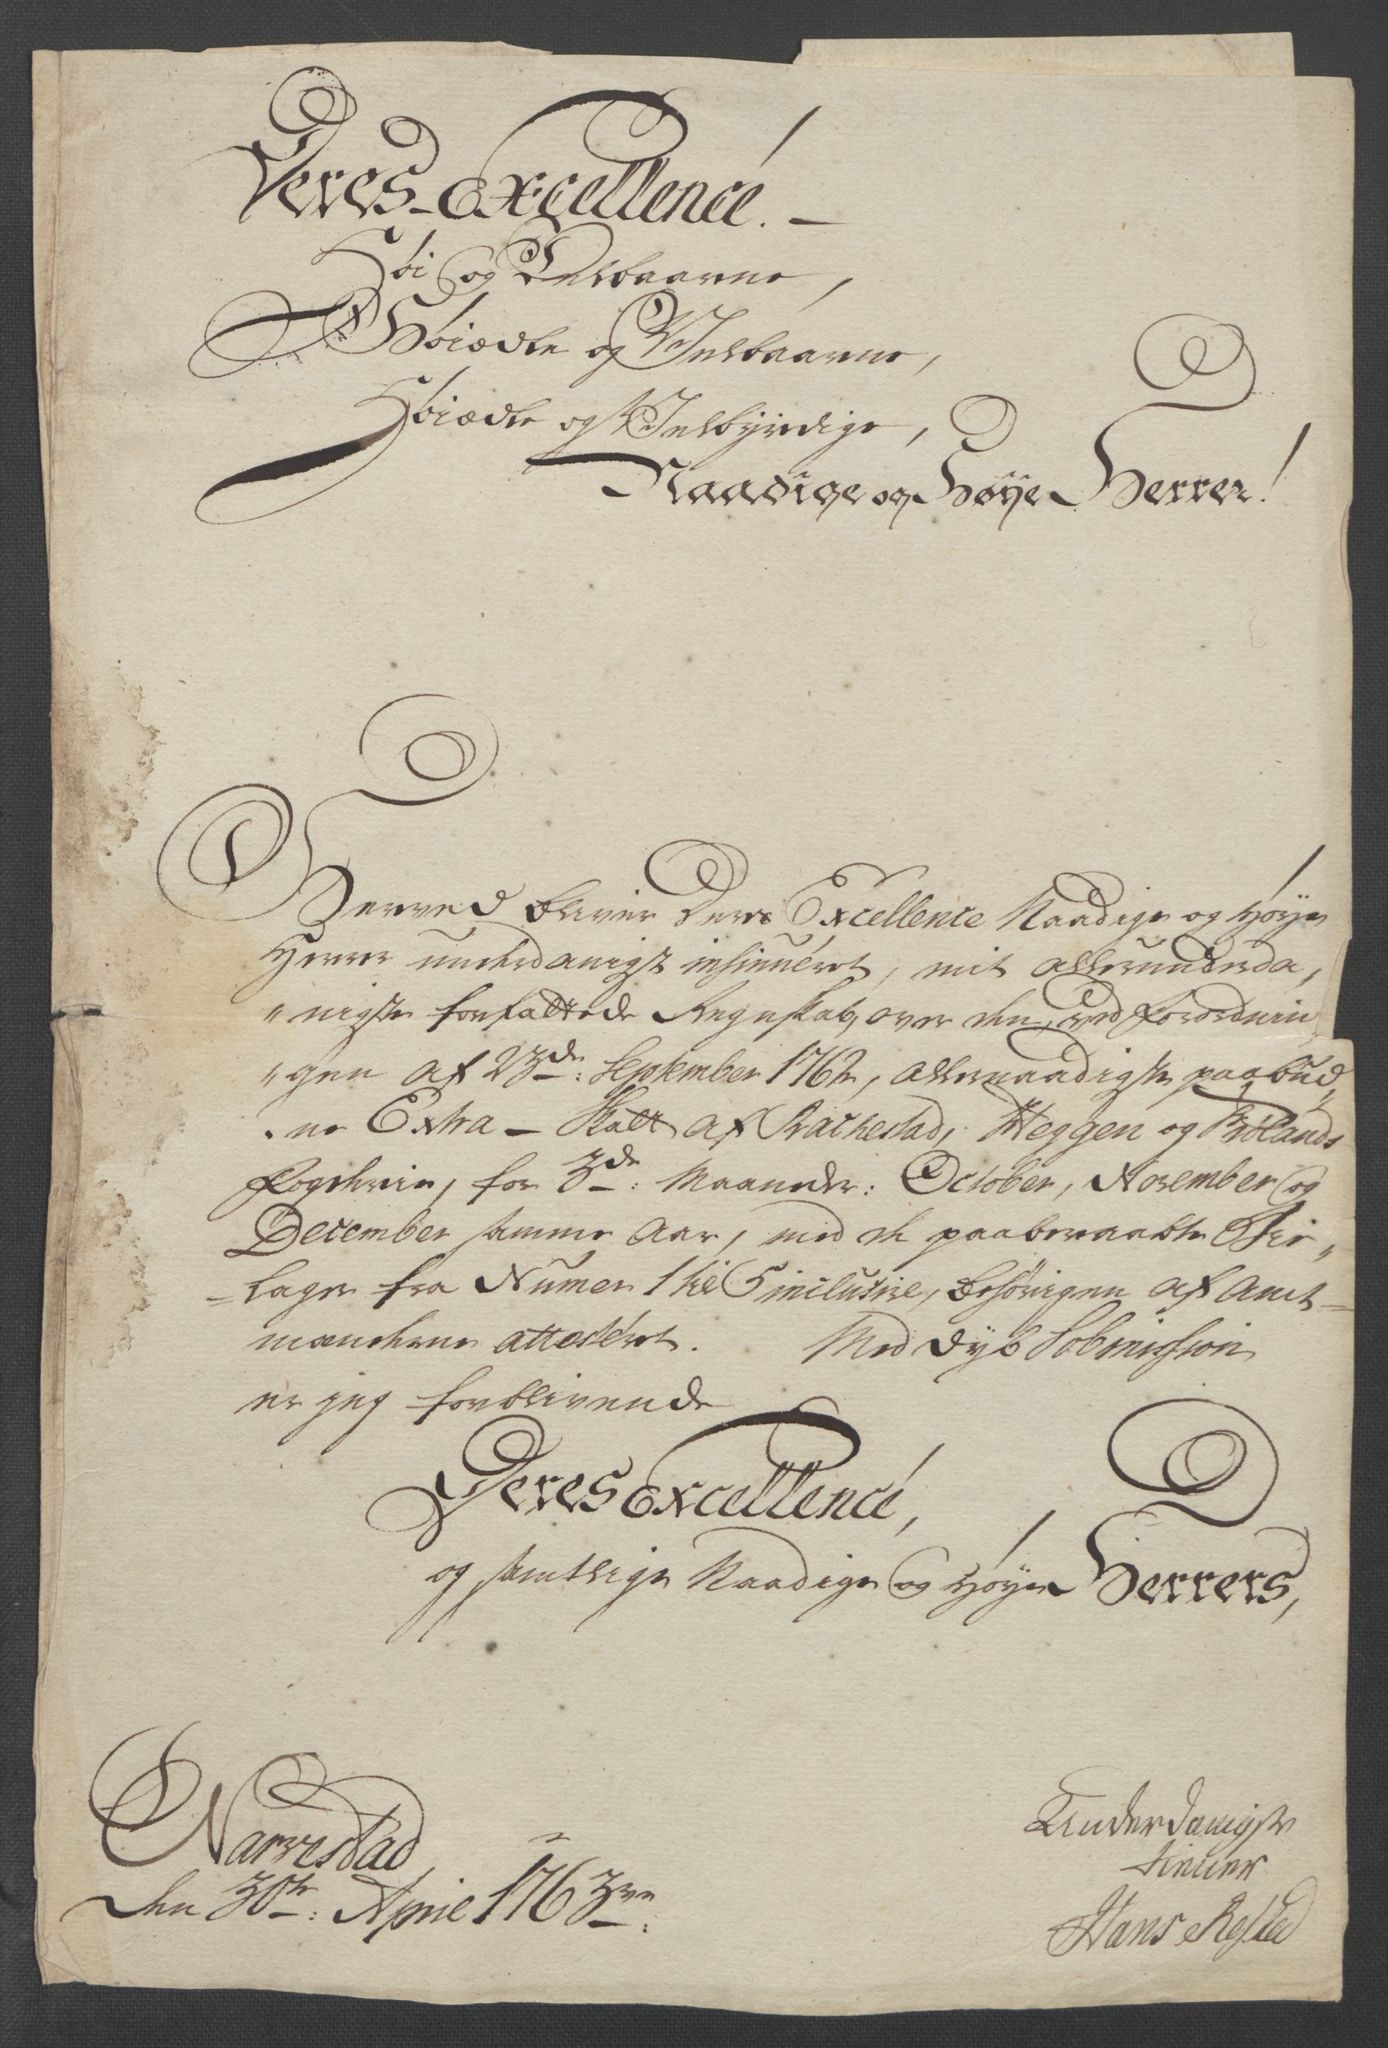 Deres Excellence!
Høi og Velbaarne,
Høiædle og Velbaarne,
Høiædle og Velbyrdige,
Naadige og Høye Herrer!
Herved bliver Deres Excellence Naadige og Høye
Herrer underdanigst insinueret, mit allerunderda,
"nigste forfattede Regnskab, over den, ved Forordnin
"gen af 23de: September 1762, allernaadigste paabud,
"ne Extra-Skatt af Rackestad, Heggen og Frølands
Fogderie, for 3de: Maaneder: October, November og
December samme Aar, med de paaberaabte Bi"
=lager fra Numer 1 til 5 inclusive, behørigen af Amt=
mændene attesteret. Med dyb Sobmission
er jeg forblivende
Deres Excellence,
og samtlige Naadige og Høye Herrers,
Narvestad
den 30te: April 1763
Underdanigste
tiener
Hans Resled